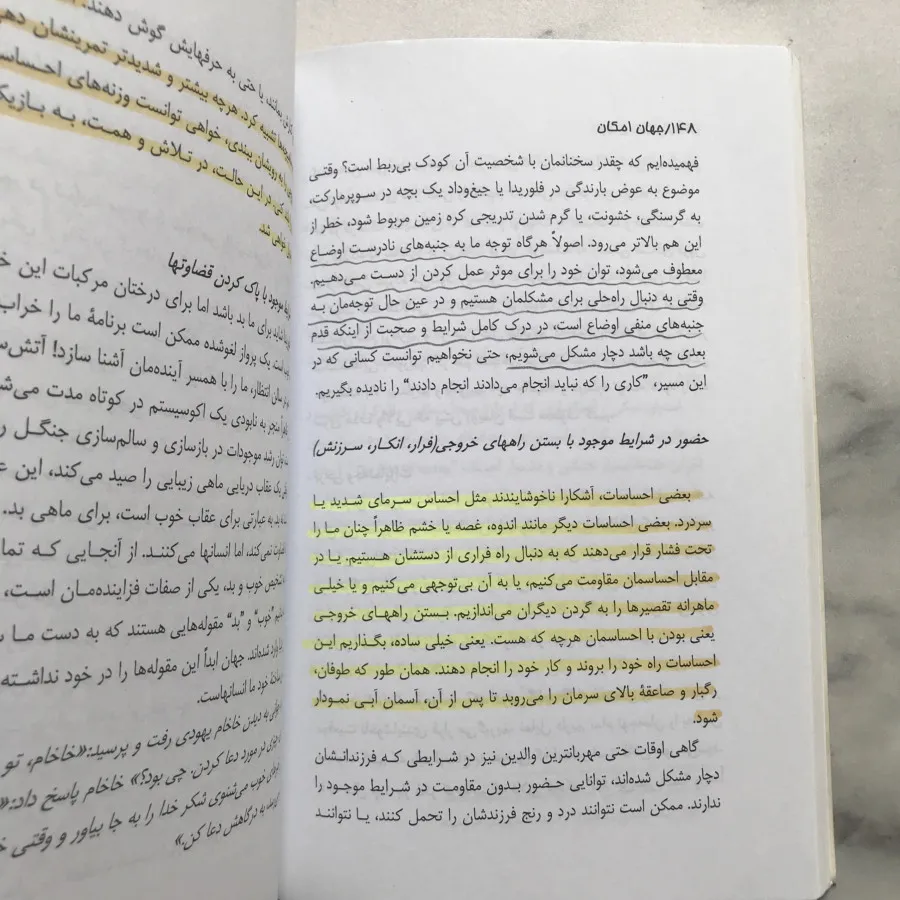 ۱۴۸/جهان امکان
فهمیده‌ایم که چقدر سخنانمان با شخصیت آن کودک بی‌ربط است؟ وقتی
موضوع به عوض بارندگی در فلوریدا یا جیغ‌وداد یک بچه در سوپرمارکت،
به گرسنگی، خشونت، یا گرم شدن تدریجی کره زمین مربوط شود، خطر از
این هم بالاتر می‌رود. اصولاً هرگاه توجه ما به جنبه‌های نادرست اوضاع
معطوف می‌شود، توان خود را برای موثر عمل کردن از دست می‌دهیم.
وقتی به دنبال راه‌حلی برای مشکلمان هستیم و در عین حال توجه‌مان به
جنبه‌های منفی اوضاع است، در درک کامل شرایط و صحبت از اینکه قدم
بعدی چه باشد دچار مشکل می‌شویم، حتی نخواهیم توانست کسانی که در
این مسیر، "کاری را که نباید انجام می‌دادند انجام دادند" را نادیده بگیریم.
حضور در شرایط موجود با بستن راههای خروجی(فرار، انکار، سرزنش)
بعضی احساسات، آشکارا ناخوشایندند مثل احساس سرمای شدید یا
سردرد. بعضی احساسات دیگر مانند اندوه، غصه یا خشم ظاهراً چنان ما را
تحت فشار قرار می‌دهند که به دنبال راه فراری از دستشان هستیم. یا در
مقابل احساسمان مقاومت می‌کنیم، یا به آن بی‌توجهی می‌کنیم و یا خیلی
ماهرانه تقصیرها را به گردن دیگران می‌اندازیم. بستن راههای خروجی
یعنی بودن با احساسمان هرچه که هست. یعنی خیلی ساده، بگذاریم این
احساسات راه خود را بروند و کار خود را انجام دهند. همان طور که طوفان،
رگبار و صاعقهٔ بالای سرمان را می‌روبد تا پس از آن، آسمان آبی نمودار
شود.
گاهی اوقات حتی مهربانترین والدین نیز در شرایطی که فرزندانشان
دچار مشکل شده‌اند، توانایی حضور بدون مقاومت در شرایط موجود را
ندارند. ممکن است نتوانند درد و رنج فرزندشان را تحمل کنند، یا نتوانند
یا حتی به حرفهایش گوش دهند.
تشبیه کرد. هرچه بیشتر و شدیدتر تمرینشان
خواهی توانست وزنه‌های
در این حالت، در تلاش و همت، به
خواهی شد.
موجود با پاک کردن قضاوتها
برای ما بد باشد اما برای درختان مرکبات این
یک پرواز لغوشده ممکن است برنامهٔ ما را خراب
سالن انتظار، ما را با همسر آینده‌مان آشنا سازد!
منجر به نابودی یک اکوسیستم در کوتاه مدت
رشد موجودات در بازسازی و سالم‌سازی جنگل
یک عقاب دریایی ماهی زیبایی را صید می‌کند، این
بد. به عبارتی برای عقاب خوب است، برای ماهی بد.
نمی‌کند، اما انسانها می‌کنند. از آنجایی که
تشخیص خوب و بد، یکی از صفات فزاینده‌مان است،
"خوب" و "بد" مقوله‌هایی هستند که به دست ما
شده‌اند. جهان ابداً این مقوله‌ها را در خود نداشته
خود ما انسانهاست.
به دیدن خاخام یهودی رفت و پرسید:«خاخام، تو
در مورد دعا کردن. چی بود؟» خاخام پاسخ داد:
خوب می‌شنوی شکر خدا را به جا بیاور و وقتی
به درگاهش دعا کن.»